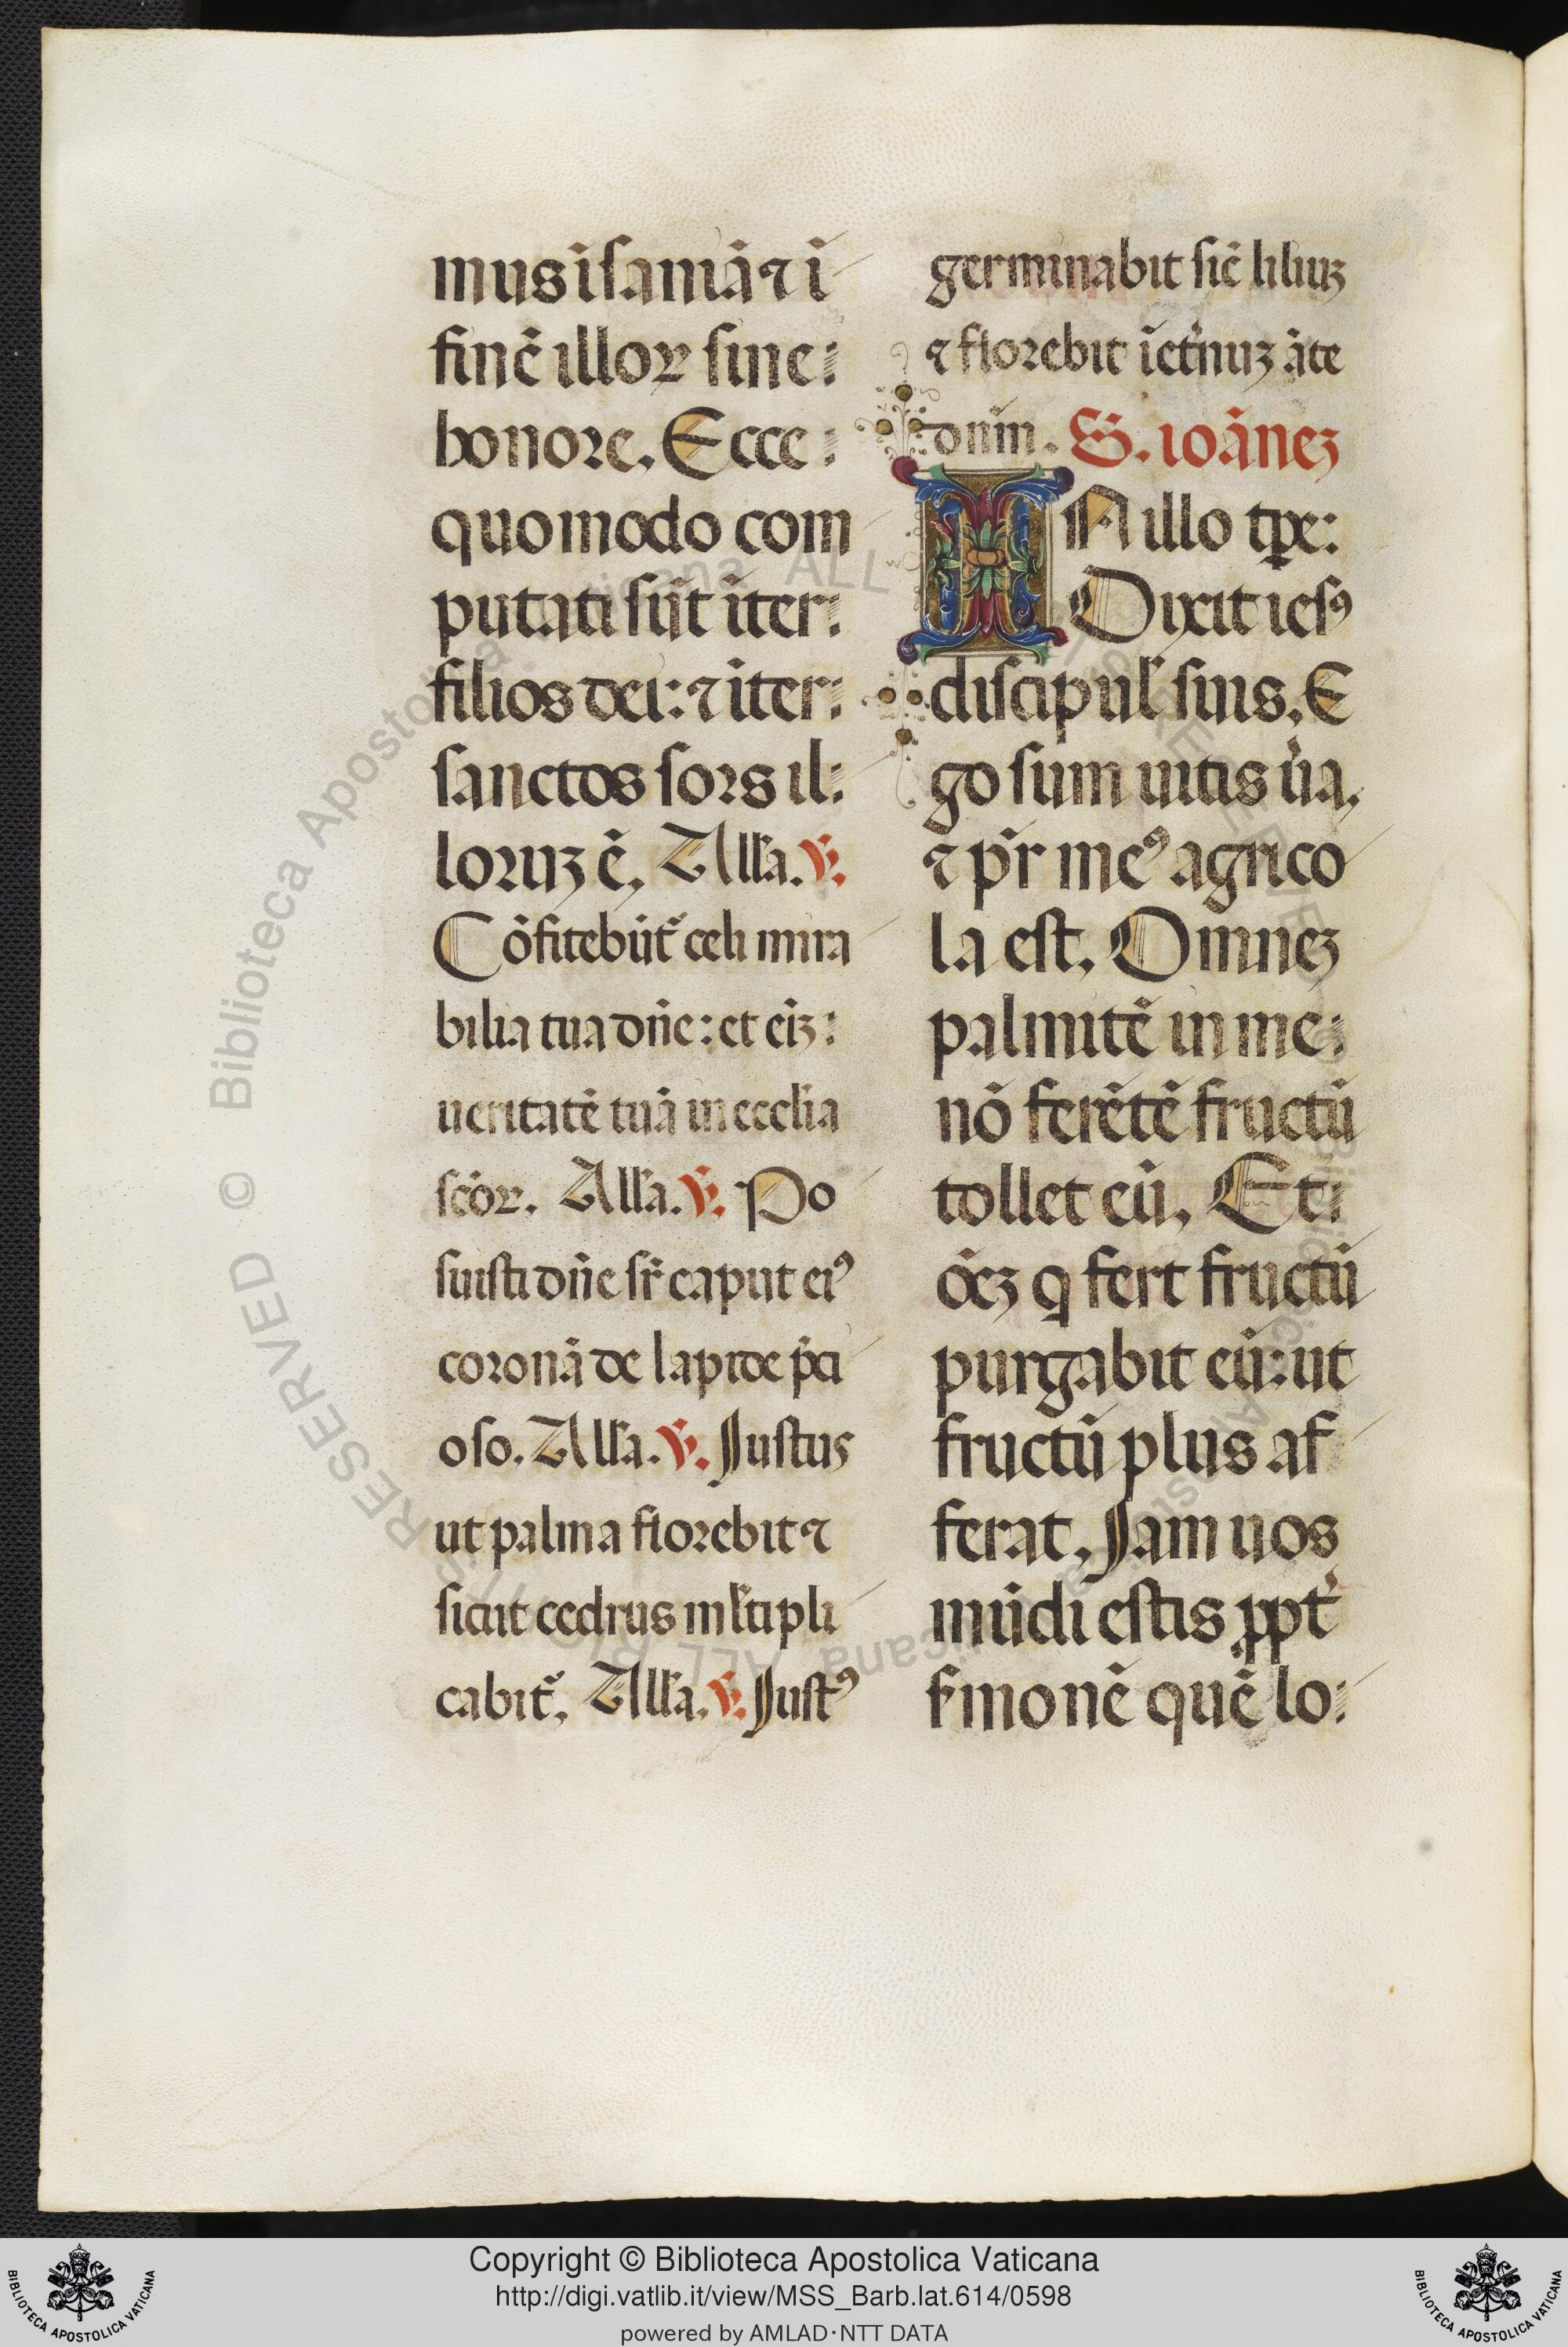 mus īsaniā ⁊ ī
finē illoꝝ sine
honore. Ecce
quomodo com
putati sūt īter
filios dei: ⁊ īter
sanctos sors il
loruꝫ ē. Alľa. ℣.
Cōfitebūt̃ celi mira
bilia tua dñe: et eīꝫ
ueritatē tuā in ecclĩa
scõꝝ. Alľa. ℣. Po
suisti dñe sr̃ caput eiꝰ
coronā de lapide p̃ci
oso. Alľa. ℣. Iustus
ut palma florebit ⁊
sicut cedrus ml̃tipli
cabit̃. Alľa. ℣. Iustꝰ
germinabit sic̃ liliuꝫ
⁊ florebit ī et̃nuꝫ āte
dñm. S. ioāneꝫ
IN illo tp̃e:
Dixit iesꝰ
discipul̃ suis. E
go sum uitis ũa,
⁊ pr̃ meꝰ agrico
la est. Omneꝫ
palmitē in me
nō ferētē fructū
tollet eū. Et
oēꝫ q fert fructū
purgabit eū: ut
fructū plus af
ferat. Iam uos
mūdi estis ꝓpt̃
s̃monē quē lo
© Biblioteca Apostolica Vaticana ALL RIGHTS RESERVED
Copyright © Biblioteca Apostolica Vaticana
http://digi.vatlib.it/view/MSS_Barb.lat.614/0598
powered by AMLAD·NTT DATA
BIBLIOTECA APOSTOLICA VATICANA
BIBLIOTECA APOSTOLICA VATICANA